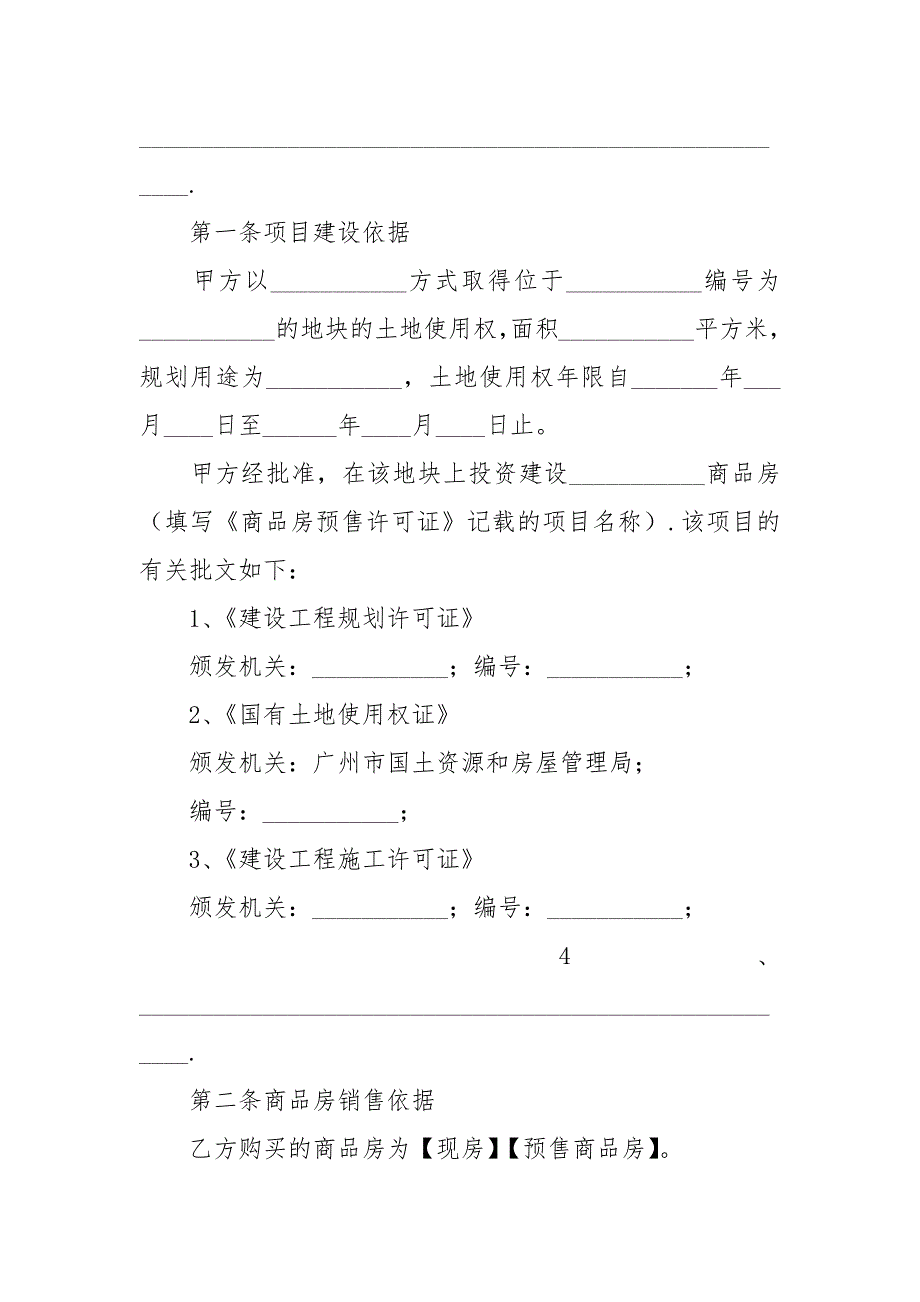 ___________________________________________________
____.
第一条项目建设依据
甲方以___________方式取得位于___________编号为
___________的地块的土地使用权,面积___________平方米,
规划用途为___________，土地使用权年限自_______年___
月____日至______年____月____日止。
甲方经批准，在该地块上投资建设___________商品房
（填写《商品房预售许可证》记载的项目名称）.该项目的
有关批文如下：
1、《建设工程规划许可证》
颁发机关：___________；编号：___________；
2、《国有土地使用权证》
颁发机关：广州市国土资源和房屋管理局；
编号：___________；
3、《建设工程施工许可证》
颁发机关：___________；编号：___________；
4、
___________________________________________________
____.
第二条商品房销售依据
乙方购买的商品房为【现房】【预售商品房】。